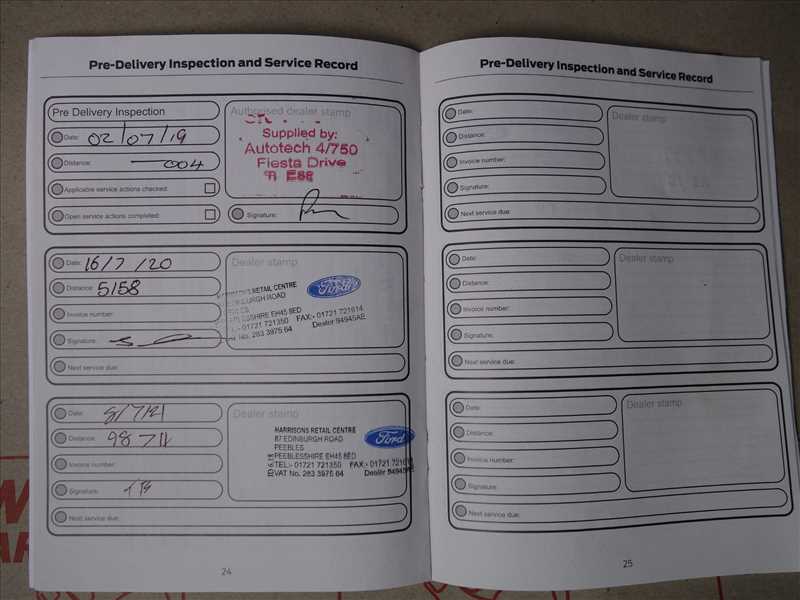 Pre-Delivery Inspection and Service Record
Pre Delivery Inspection
Date: 02/07/19
Distance: 004
Applicable service actions checked:
Open service actions completed:
Authorised dealer stamp
Supplied by:
Autotech 4/750
Fiesta Drive
Signature:
Date: 16/7/20
Distance: 5158
Invoice number:
Signature:
Next service due:
Dealer stamp
HARRISONS RETAIL CENTRE
EDINBURGH ROAD
EH45 8ED
01721 721350 FAX:- 01721 721614
No. 263 3975 64 Dealer 94945AE
Ford
Date: 8/7/21
Distance: 9871
Invoice number:
Signature:
Next service due:
Dealer stamp
HARRISONS RETAIL CENTRE
87 EDINBURGH ROAD
PEEBLES
PEEBLESSHIRE EH45 8ED
TEL:- 01721 721350 FAX:- 01721 721614
VAT No. 263 3975 64 Dealer 94945AE
Ford
24
Pre-Delivery Inspection and Service Record
Date:
Distance:
Invoice number:
Signature:
Next service due:
Dealer stamp
Date:
Distance:
Invoice number:
Signature:
Next service due:
Dealer stamp
Date:
Distance:
Invoice number:
Signature:
Next service due:
Dealer stamp
25